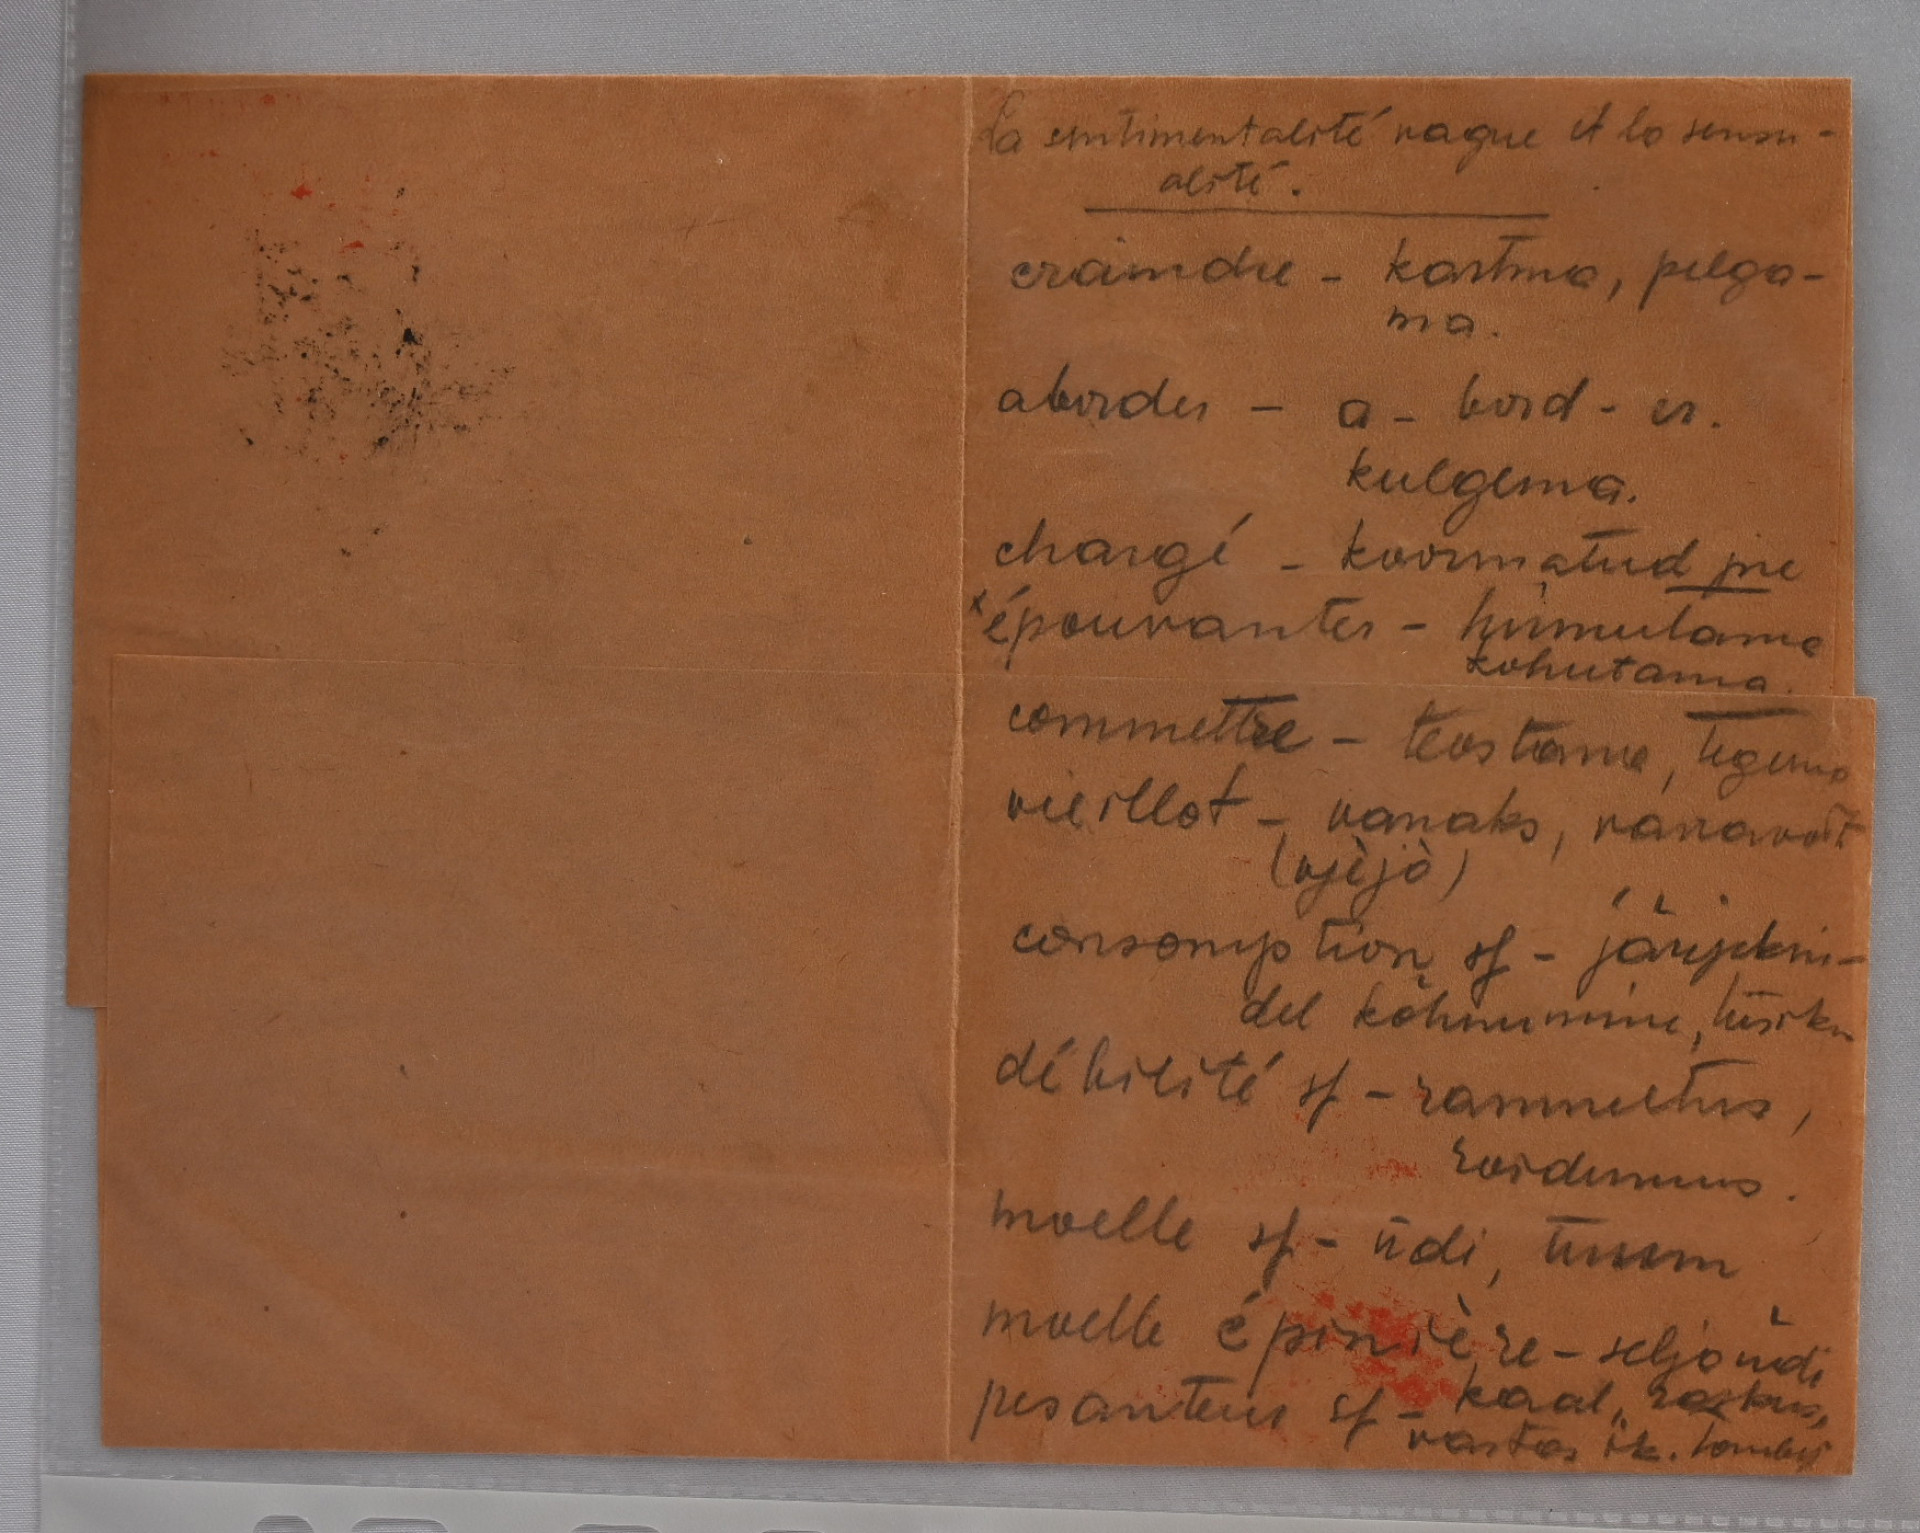 La sentimentalité vague et la sensu-
alité.
craindre - kartma, pelga-
ma.
aborder - a - bord - er.
kulgema.
chargé - koormatud
x épouvanter - hirmutama
kohutama.
commettre - teostama, tegema
vieillot - vanaks, vanavõit
(vjèjò)
consomption sf - järjekin-
del kõhnumine, tiisikus
débilité sf - rammetus,
roidumus.
moelle sf - üdi, tuum
moelle épinière - seljaüdi
pesanteur sf - kaal, raskus,